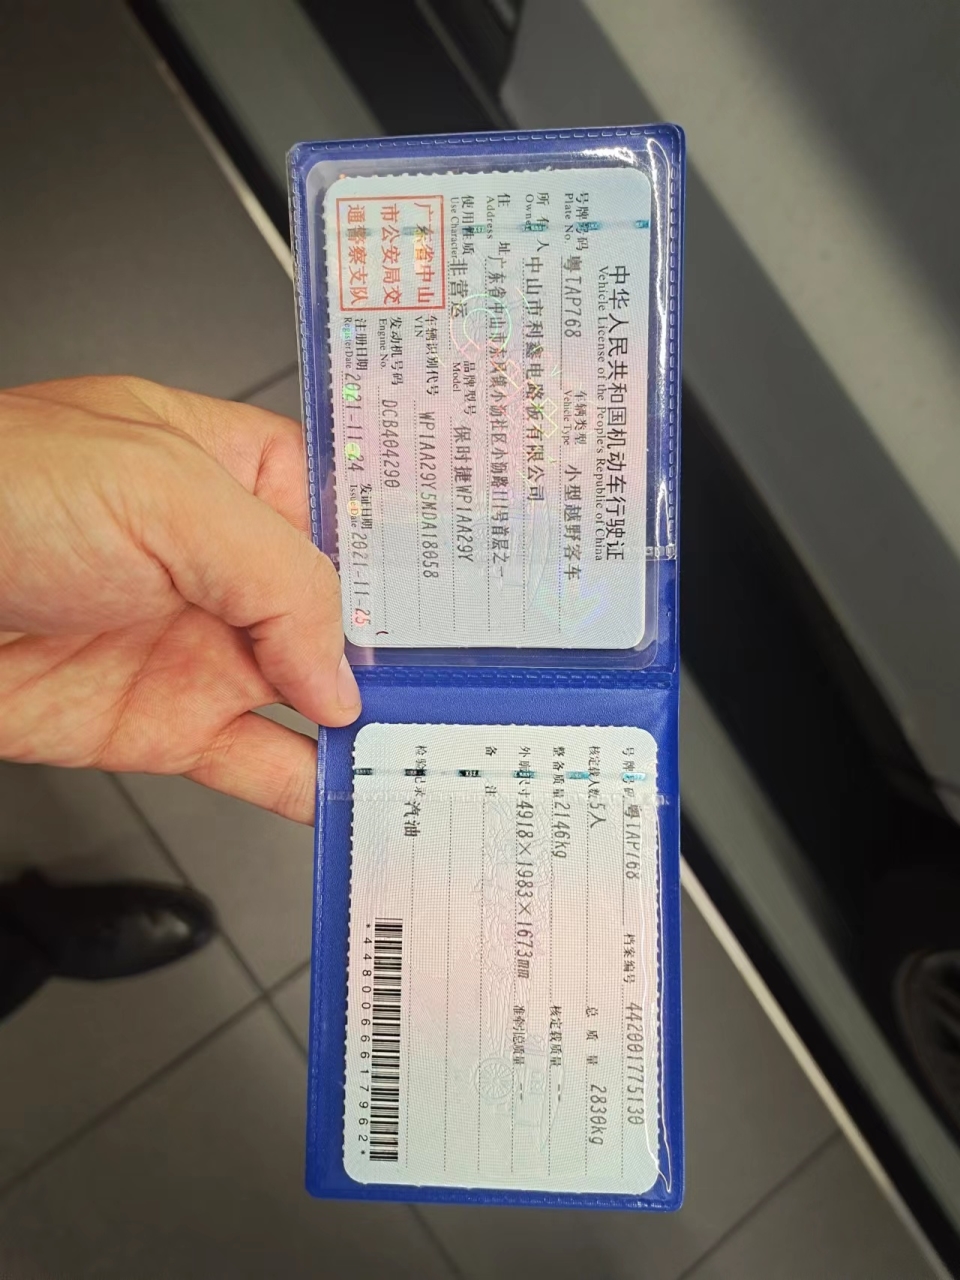 中华人民共和国机动车行驶证
Vehicle License of the People's Republic of China
号牌号码 粤TAP768 车辆类型 小型越野客车
Plate No. Vehicle Type
所有人 中山市利鑫电路板有限公司
Owner
住址 广东省中山市东凤镇小沥社区小沥路11号首层之一
Address
使用性质 非营运 品牌型号 保时捷WP1AA29Y
Use Character Model
广东省中山
市公安局交
通警察支队
车辆识别代号 WP1AA29Y5MDA18058
VIN
发动机号码 DCB404290
Engine No.
注册日期 2021-11-24 发证日期 2021-11-25
Register Date Issue Date
号牌号码 粤TAP768 档案编号 442001775130
核定载人数 5人 总质量 2830kg
整备质量 2146kg 核定载质量 --
外廓尺寸 4918×1983×1673mm 准牵引总质量 --
备注
检验记录 汽油
*4480066617962*